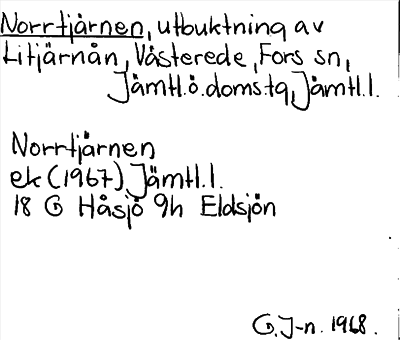 Norrtjärnen, utbuktning av
Litjärnån, Västerede, Fors sn,
Jämtl.ö.doms.tg, Jämtl.l.
Norrtjärnen
ek (1967) Jämtl.l.
18 G Håsjö 9h Eldsjön
G. J-n. 1968.